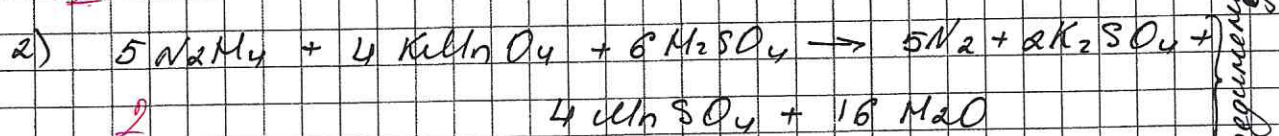 2) 5 N2H4 + 4 KMnO4 + 6 H2SO4 → 5N2 + 2K2SO4 +
2 4 MnSO4 + 16 H2O